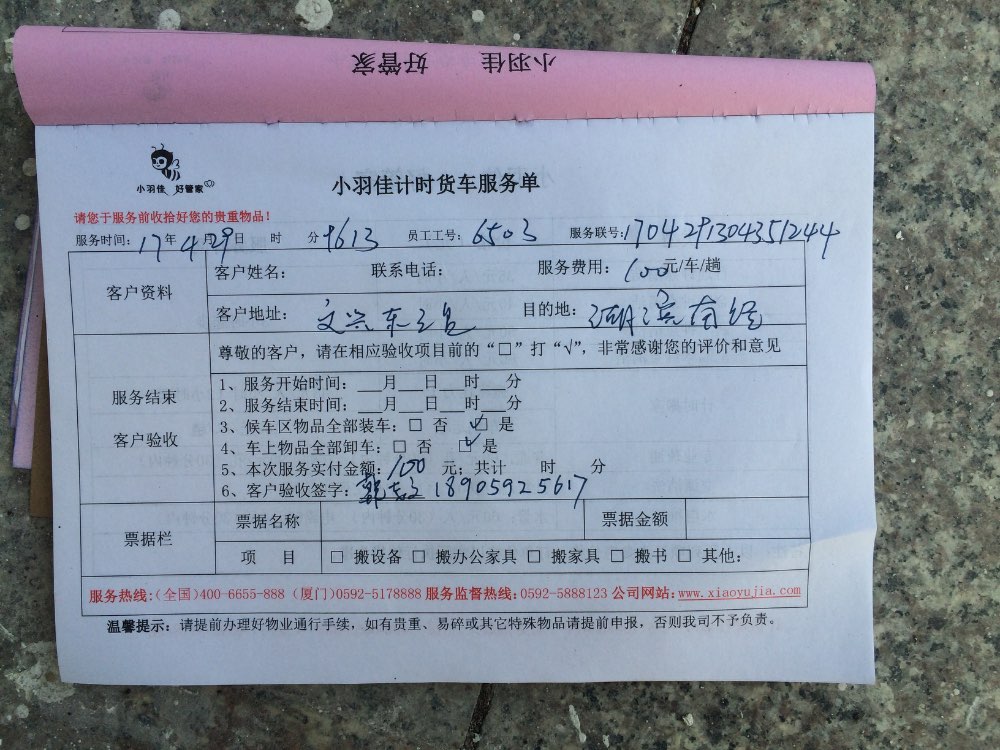 小羽佳 好管家
小羽佳 好管家
小羽佳计时货车服务单
请您于服务前收拾好您的贵重物品！
服务时间：17年4月29日 时 分 9613 员工工号：6503 服务联号：1704291304351244
客户资料
客户姓名： 联系电话： 服务费用：100元/车/趟
客户地址：文兴东三 目的地：湖滨南
尊敬的客户，请在相应验收项目前的“□”打“√”，非常感谢您的评价和意见
服务结束
客户验收
1、服务开始时间：___月___日___时___分
2、服务结束时间：___月___日___时___分
3、候车区物品全部装车：□ 否 ☑ 是
4、车上物品全部卸车：□ 否 ☑ 是
5、本次服务实付金额：100 元；共计 时 分
6、客户验收签字：18905925617
票据栏
票据名称 票据金额
项 目 □ 搬设备 □ 搬办公家具 □ 搬家具 □ 搬书 □ 其他：
服务热线：(全国)400-6655-888 (厦门)0592-5178888 服务监督热线：0592-5888123 公司网站：www.xiaoyujia.com
温馨提示：请提前办理好物业通行手续，如有贵重、易碎或其它特殊物品请提前申报，否则我司不予负责。